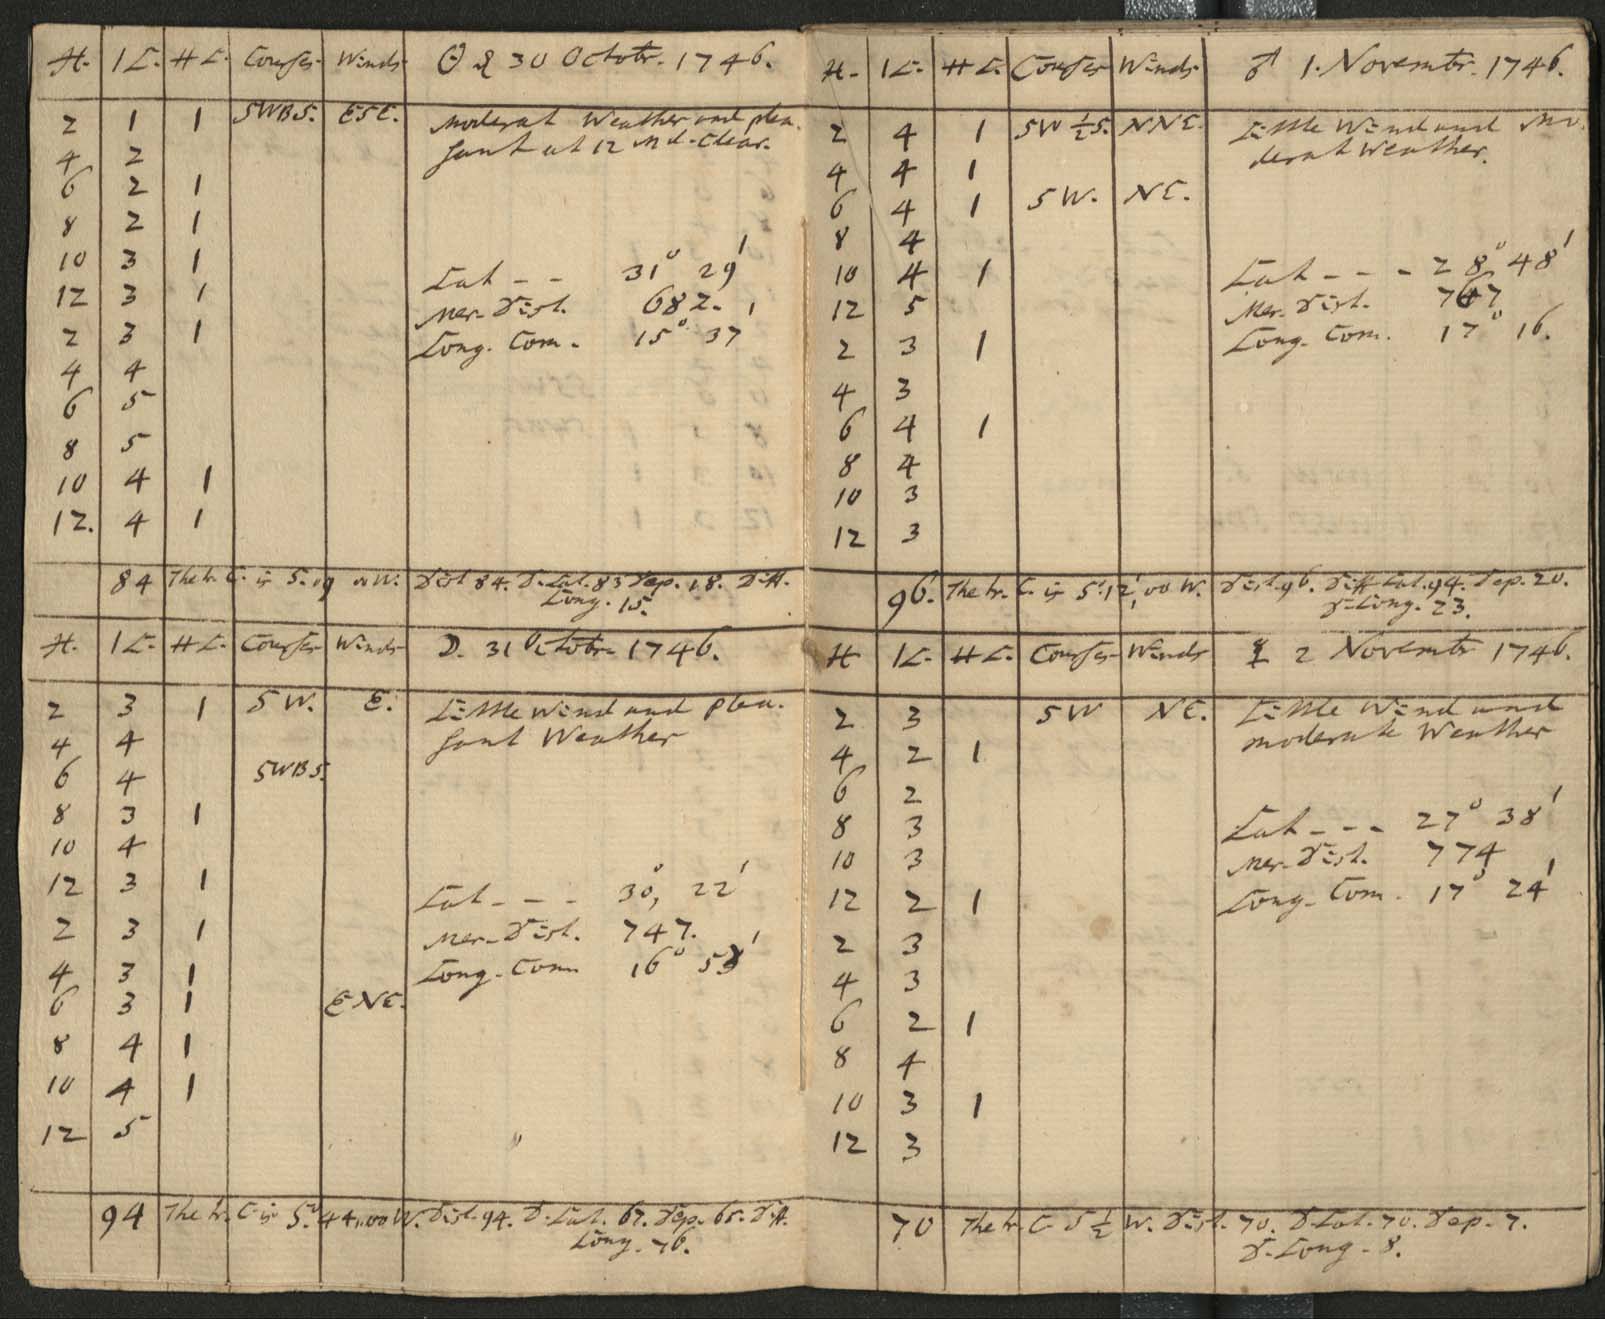 H. 1K. HK. Courses Winds ☉ 30 Octobr. 1746.
2 1 1 SWBS. ESE. moderat Weather and plea.
4 2 sant at 12 Md. Clear.
6 2 1
8 2 1
10 3 1 Lat - - 31° 29'
12 3 1 Mer. Dist. 682.
2 3 1 Long. Com. 15° 37'
4 4
6 5
8 5
10 4 1
12. 4 1
84 The tr. C. is S. 09 00 W. Dist 84. D. Lat. 83 Dep. 18. Diff.
Long. 15.
H. 1K. HK. Courses Winds ☽. 31 Octobr. 1746.
2 3 1 SW. E. Little Wind and plea.
4 4 sant Weather
6 4 SWBS.
8 3 1
10 4
12 3 1 Lat - - - 30°, 22'
2 3 1 Mer. Dist. 747.
4 3 1 Long. Com. 16° 53'
6 3 1 ENE.
8 4 1
10 4 1
12 5
94 The tr. C. is S. 44,,00 W. Dist. 94. D. Lat. 67. Dep. 65. Diff.
Long. 76.
H. 1K. HK. Courses Winds ♂ 1. Novembr. 1746.
2 4 1 SW ½ S. NNE. Little Wind and Mo.
4 4 1 derat Weather.
6 4 1 SW. NE.
8 4
10 4 1 Lat - - - 28° 48'
12 5 Mer. Dist. 767
2 3 1 Long. Com. 17° 16.
4 3
6 4 1
8 4
10 3
12 3
96. The tr. C. is S. 12, 00 W. Dist. 96. Diff Lat. 94. Dep. 20.
D. Long. 23.
H 1K. HK. Courses Winds ☿ 2 Novembr 1746.
2 3 SW NE. Little Wind and
4 2 1 moderate Weather
6 2
8 3 Lat - - - 27° 38'
10 3 Mer. Dist. 774
12 2 1 Long. Com. 17° 24'
2 3
4 3
6 2 1
8 4
10 3 1
12 3
70 The tr. C. S ½ W. Dist. 70. D. Lat. 70. Dep. 7.
D. Long. 8.